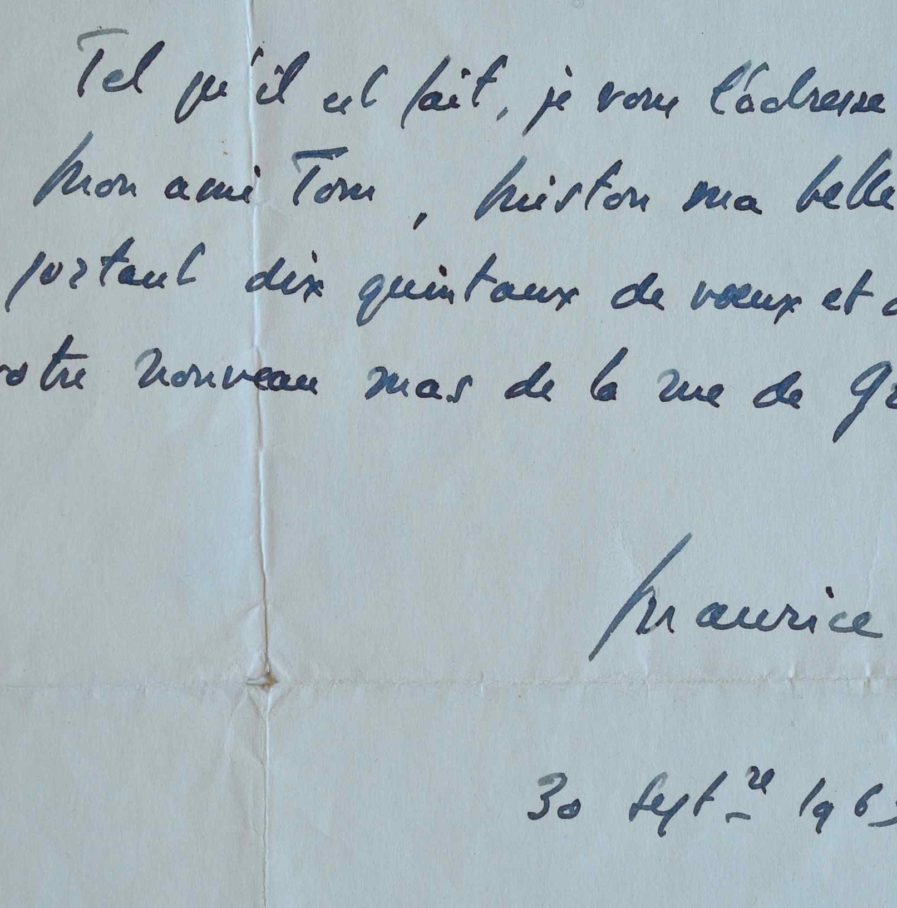 Tel qu'il est fait, je vous l'adresse
mon ami Tom, miston ma belle
portant dix quintaux de vœux et
votre nouveau mas de la rue de
Maurice
30 Sept.re 196